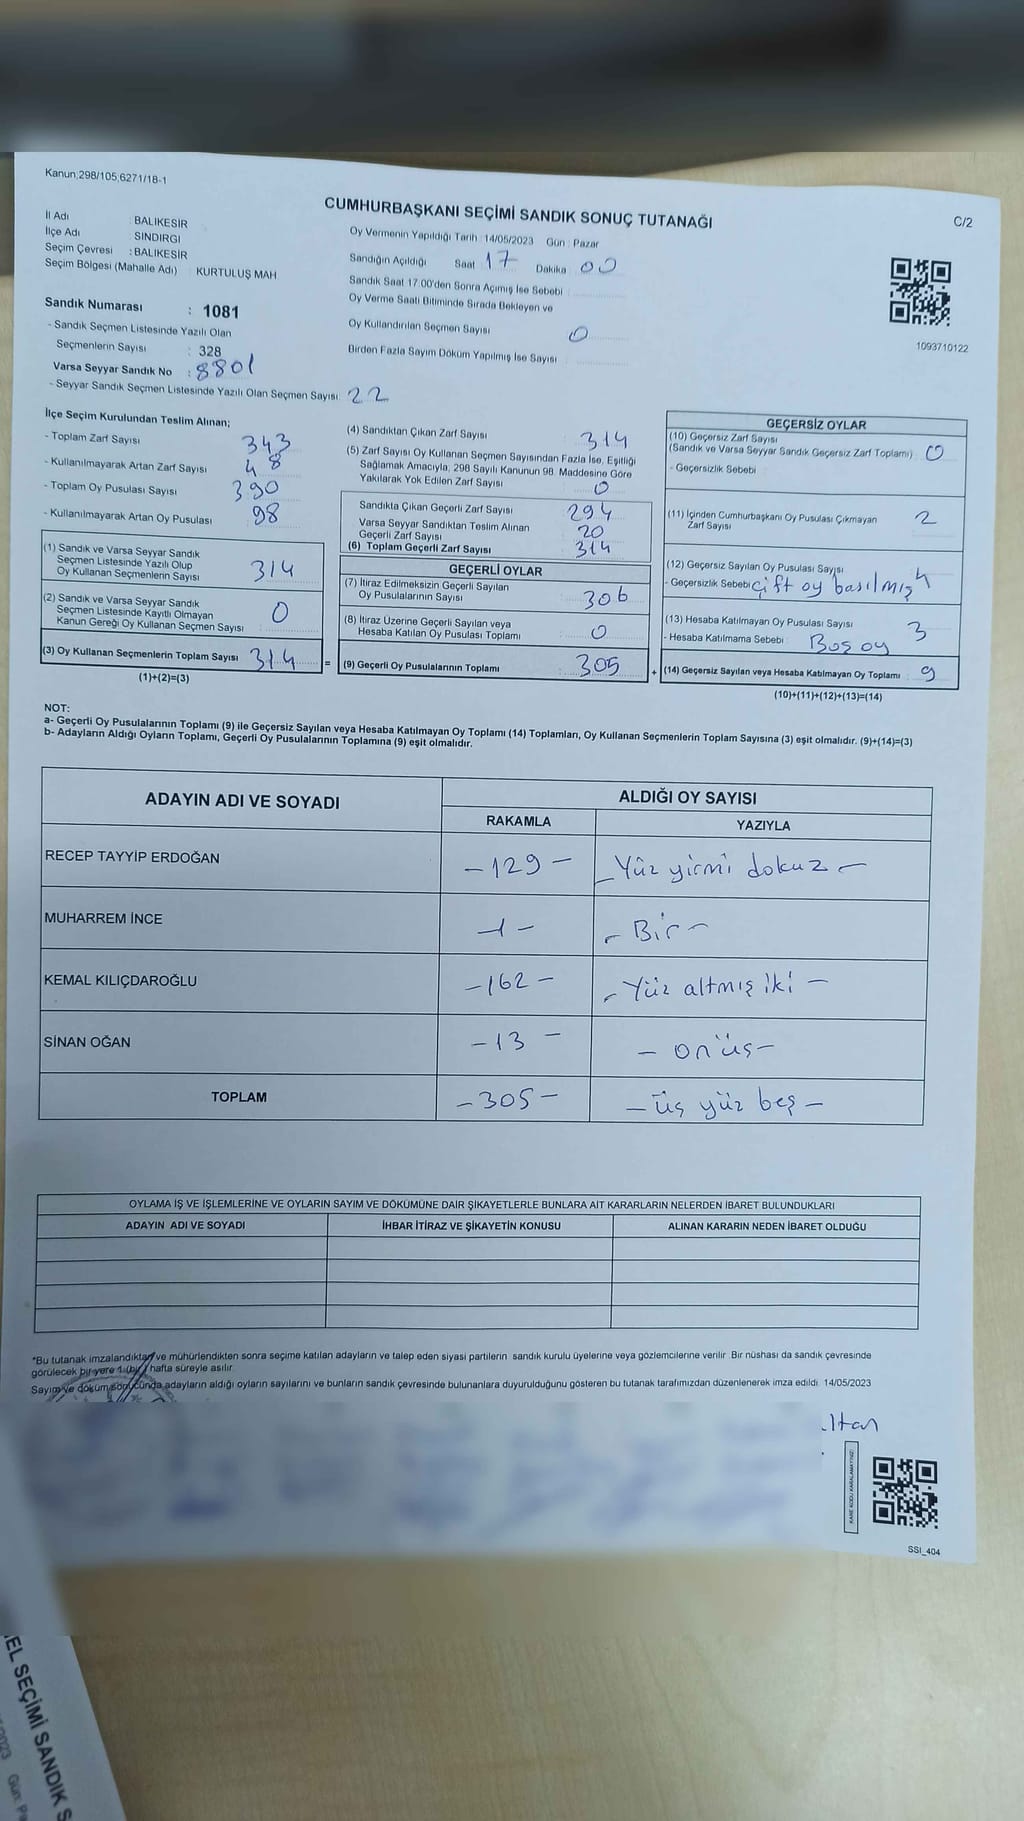 Kanun;298/105;6271/18-1
CUMHURBAŞKANI SEÇİMİ SANDIK SONUÇ TUTANAĞI
C/2
İl Adı BALIKESİR
İlçe Adı SINDIRGI
Seçim Çevresi : BALIKESİR
Seçim Bölgesi (Mahalle Adı) KURTULUŞ MAH
Oy Vermenin Yapıldığı Tarih 14/05/2023 Gün : Pazar
Sandığın Açıldığı Saat 17 Dakika 00
Sandık Saat 17.00'den Sonra Açımış İse Sebebi
Oy Verme Saati Bitiminde Sırada Bekleyen ve
Oy Kullandırılan Seçmen Sayısı 0
Birden Fazla Sayım Döküm Yapılmış İse Sayısı
1093710122
Sandık Numarası : 1081
- Sandık Seçmen Listesinde Yazılı Olan
Seçmenlerin Sayısı : 328
Varsa Seyyar Sandık No : 8801
- Seyyar Sandık Seçmen Listesinde Yazılı Olan Seçmen Sayısı 22
İlçe Seçim Kurulundan Teslim Alınan;
- Toplam Zarf Sayısı 343
- Kullanılmayarak Artan Zarf Sayısı 48
- Toplam Oy Pusulası Sayısı 390
- Kullanılmayarak Artan Oy Pusulası 98
(1) Sandık ve Varsa Seyyar Sandık
Seçmen Listesinde Yazılı Olup
Oy Kullanan Seçmenlerin Sayısı 314
(2) Sandık ve Varsa Seyyar Sandık
Seçmen Listesinde Kayıtlı Olmayan
Kanun Gereği Oy Kullanan Seçmen Sayısı 0
(3) Oy Kullanan Seçmenlerin Toplam Sayısı 314
(1)+(2)=(3)
(4) Sandıktan Çıkan Zarf Sayısı 314
(5) Zarf Sayısı Oy Kullanan Seçmen Sayısından Fazla İse, Eşitliği
Sağlamak Amacıyla, 298 Sayılı Kanunun 98. Maddesine Göre
Yakılarak Yok Edilen Zarf Sayısı 0
Sandıkta Çıkan Geçerli Zarf Sayısı 294
Varsa Seyyar Sandıktan Teslim Alınan
Geçerli Zarf Sayısı 20
(6) Toplam Geçerli Zarf Sayısı 314
GEÇERLİ OYLAR
(7) İtiraz Edilmeksizin Geçerli Sayılan
Oy Pusulalarının Sayısı 306
(8) İtiraz Üzerine Geçerli Sayılan veya
Hesaba Katılan Oy Pusulası Toplamı 0
= (9) Geçerli Oy Pusulalarının Toplamı 305
GEÇERSİZ OYLAR
(10) Geçersiz Zarf Sayısı
(Sandık ve Varsa Seyyar Sandık Geçersiz Zarf Toplamı) 0
- Geçersizlik Sebebi
(11) İçinden Cumhurbaşkanı Oy Pusulası Çıkmayan
Zarf Sayısı 2
(12) Geçersiz Sayılan Oy Pusulası Sayısı 4
- Geçersizlik Sebebi Çift oy basılmış
(13) Hesaba Katılmayan Oy Pusulası Sayısı 3
- Hesaba Katılmama Sebebi Boş oy
+ (14) Geçersiz Sayılan veya Hesaba Katılmayan Oy Toplamı 9
(10)+(11)+(12)+(13)=(14)
NOT:
a- Geçerli Oy Pusulalarının Toplamı (9) ile Geçersiz Sayılan veya Hesaba Katılmayan Oy Toplamı (14) Toplamları, Oy Kullanan Seçmenlerin Toplam Sayısına (3) eşit olmalıdır. (9)+(14)=(3)
b- Adayların Aldığı Oyların Toplamı, Geçerli Oy Pusulalarının Toplamına (9) eşit olmalıdır.
ADAYIN ADI VE SOYADI ALDIĞI OY SAYISI
RAKAMLA YAZIYLA
RECEP TAYYİP ERDOĞAN -129- - Yüz yirmi dokuz -
MUHARREM İNCE -1- - Bir -
KEMAL KILIÇDAROĞLU -162- - Yüz altmış iki -
SİNAN OĞAN -13- - onüş -
TOPLAM -305- - üş yüz beş -
OYLAMA İŞ VE İŞLEMLERİNE VE OYLARIN SAYIM VE DÖKÜMÜNE DAİR ŞİKAYETLERLE BUNLARA AİT KARARLARIN NELERDEN İBARET BULUNDUKLARI
ADAYIN ADI VE SOYADI İHBAR İTİRAZ VE ŞİKAYETİN KONUSU ALINAN KARARIN NEDEN İBARET OLDUĞU
*Bu tutanak imzalandıktan ve mühürlendikten sonra seçime katılan adayların ve talep eden siyasi partilerin sandık kurulu üyelerine veya gözlemcilerine verilir. Bir nüshası da sandık çevresinde
görülecek bir yere 1 (bir) hafta süreyle asılır.
Sayım ve döküm sonucunda adayların aldığı oyların sayılarını ve bunların sandık çevresinde bulunanlara duyurulduğunu gösteren bu tutanak tarafımızdan düzenlenerek imza edildi. 14/05/2023
KARE KODU KARALAMAYINIZ!
SSI_404
EL SEÇİMİ SANDIK S
/2023 Gün: Pa